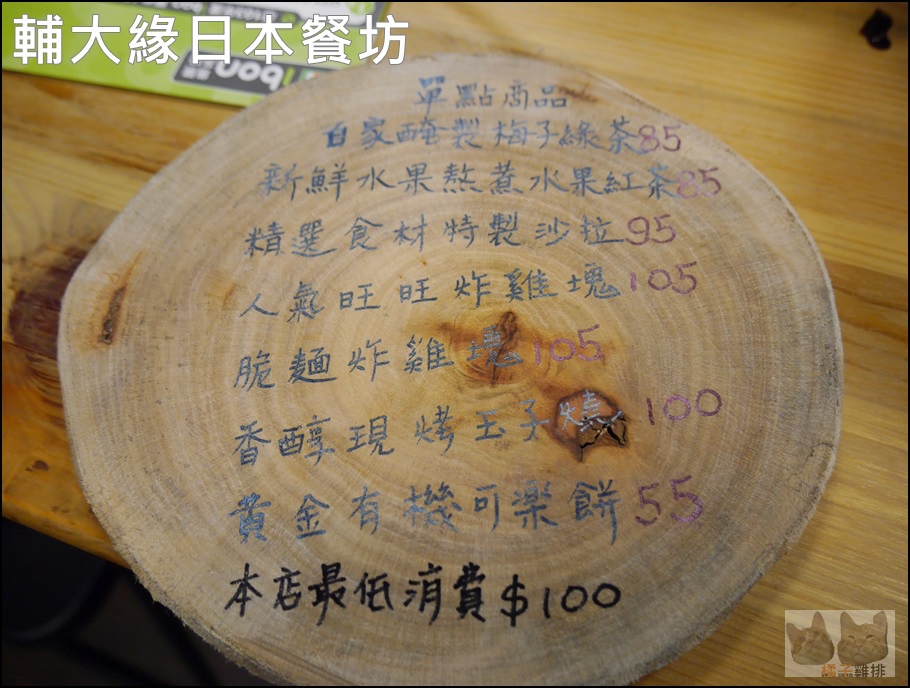 輔大緣日本餐坊
單點商品
自家醃製梅子綠茶85
新鮮水果熬煮水果紅茶85
精選食材特製沙拉95
人氣旺旺炸雞塊105
脆麵炸雞塊105
香醇現烤玉子燒100
黃金有機可樂餅55
本店最低消費$100
橘子雞排